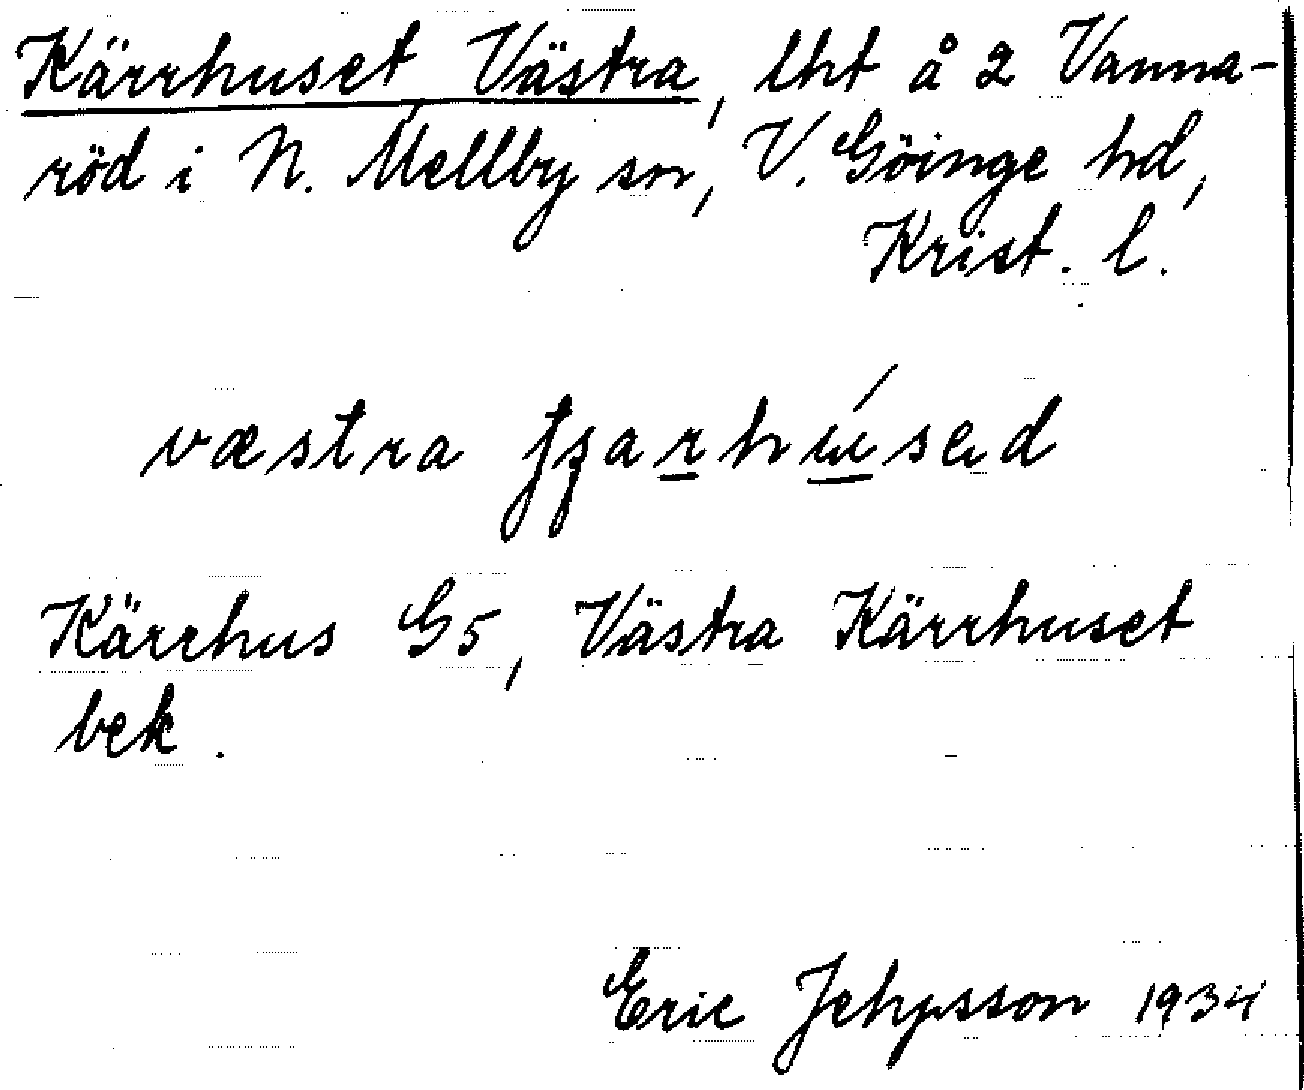 Kärrhuset Västra, lht å 2 Vanna-
röd i N. Mellby sn, V. Göinge hd,
Krist. l.
væstra
Kärrhus G5, Västra Kärrhuset
bek.
Eric Jehpsson 1934